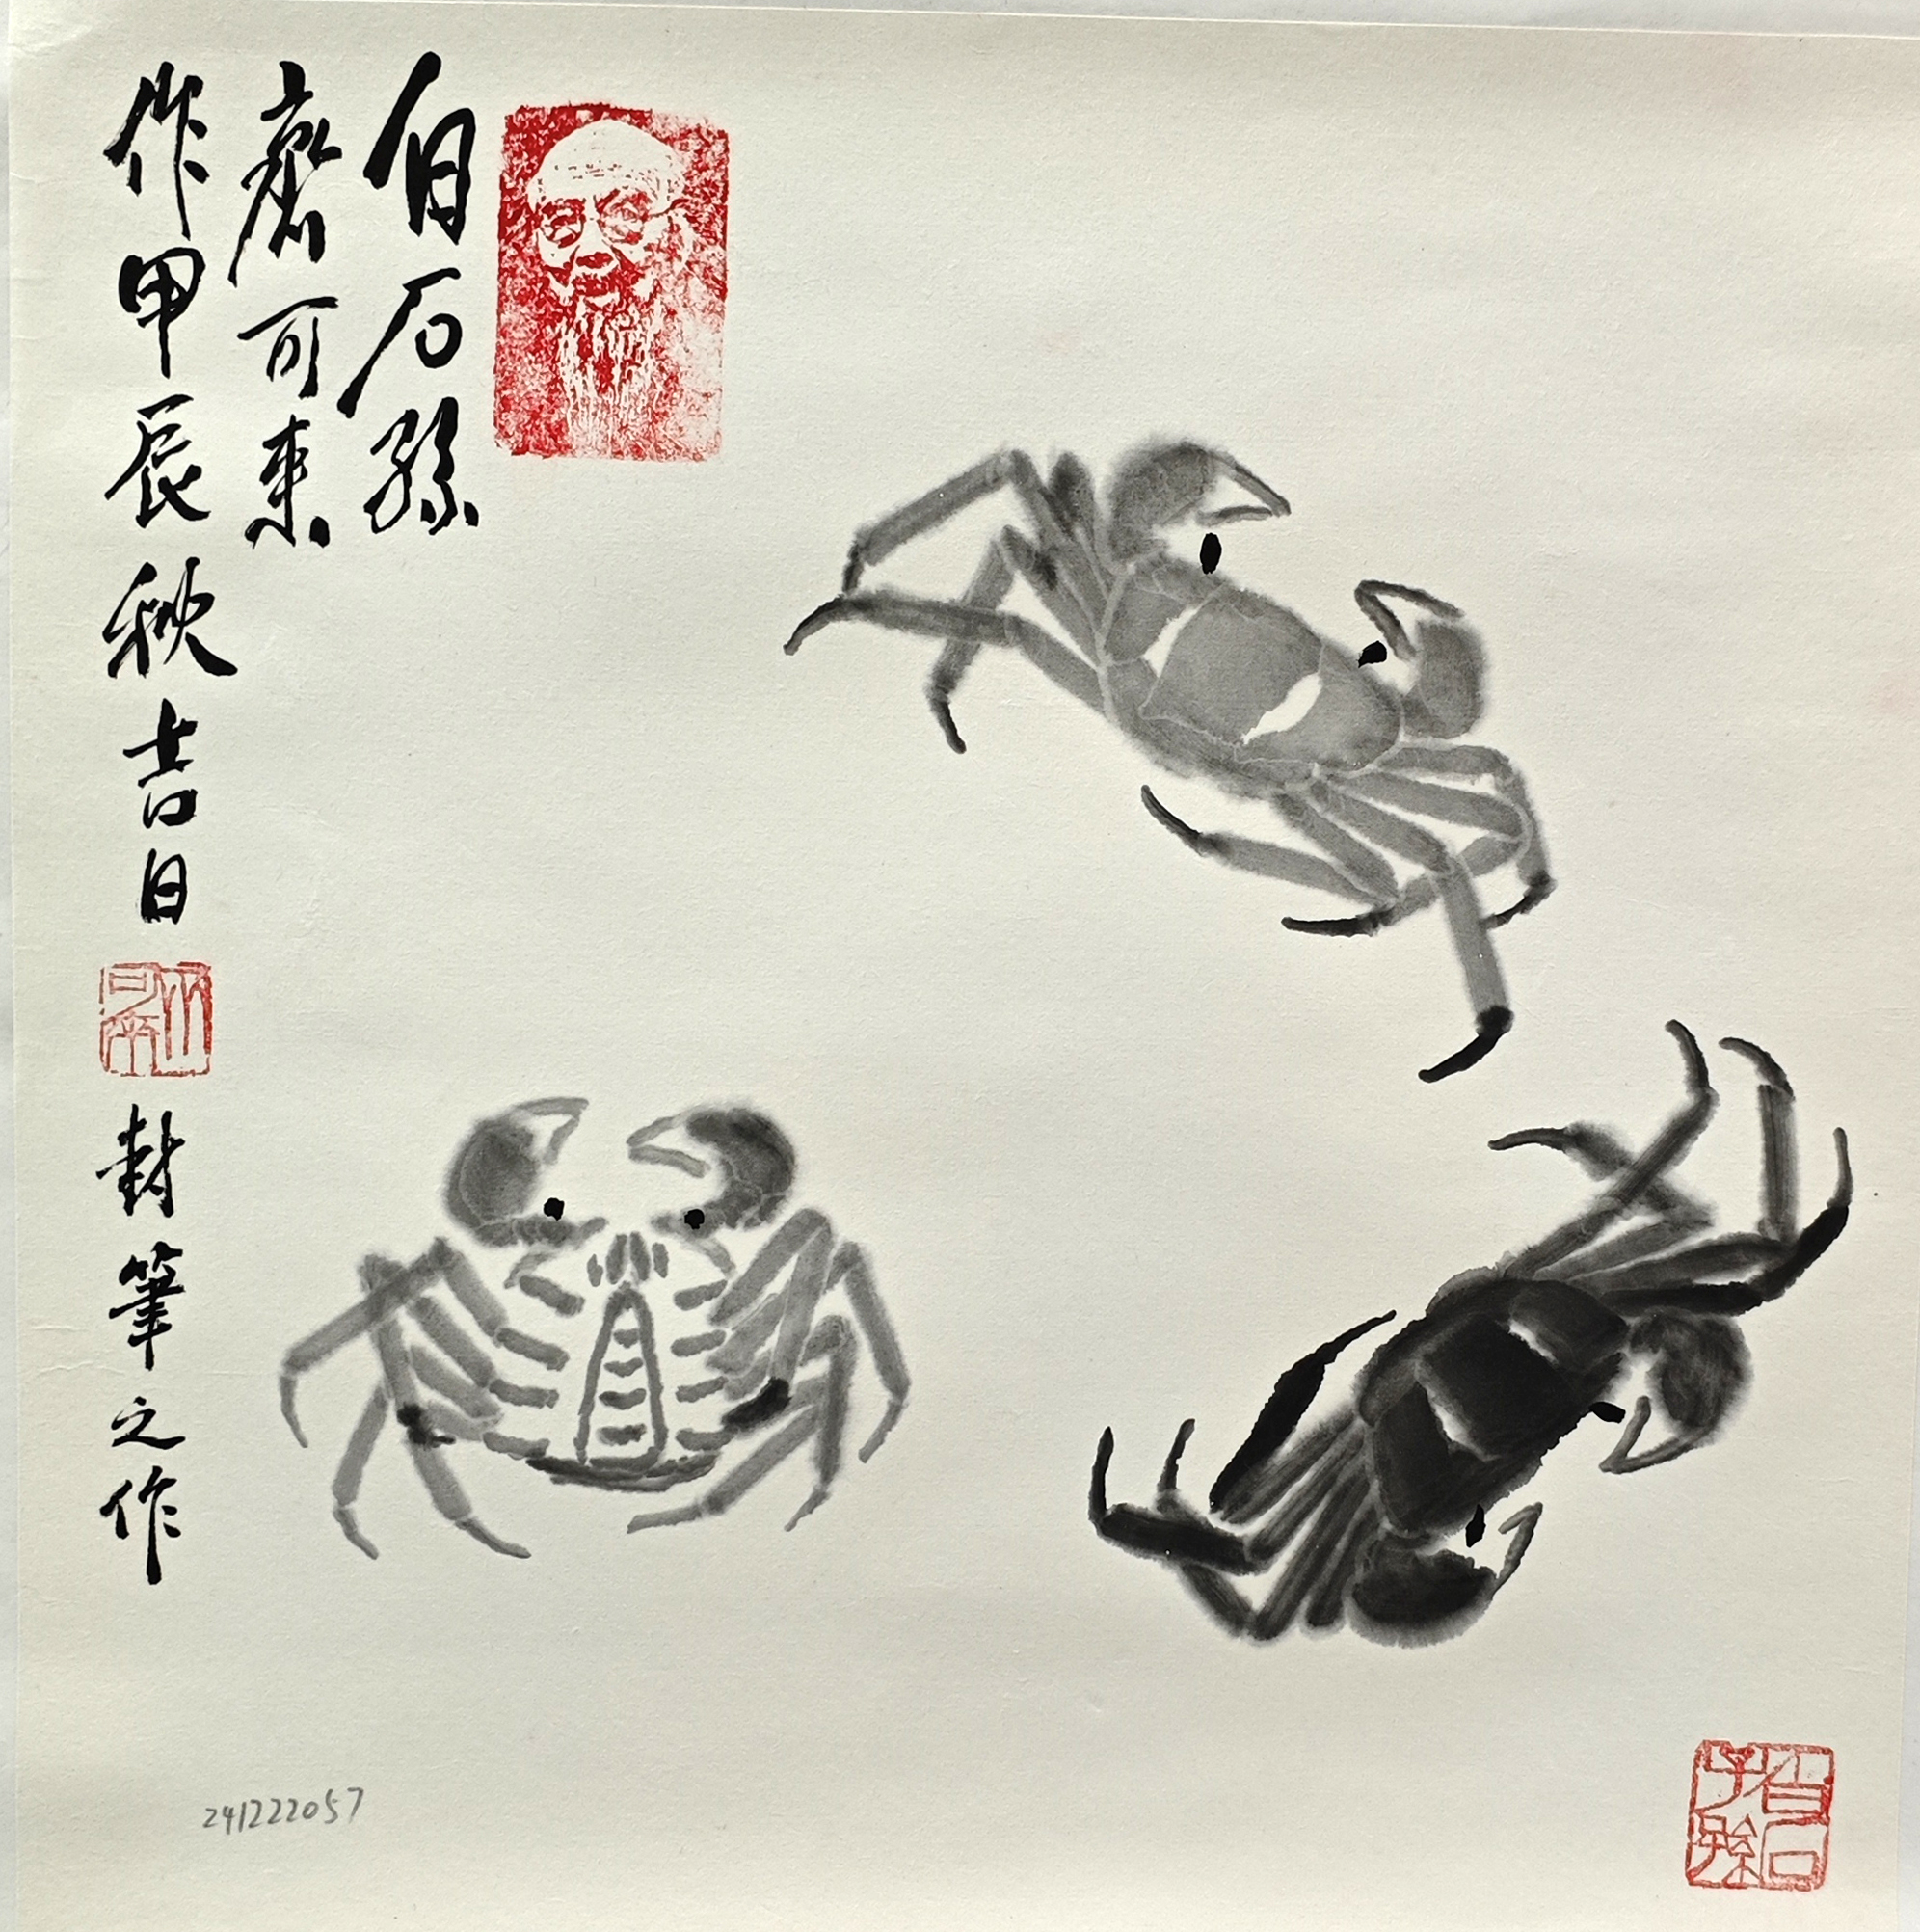 白石孫
齊可来
作甲辰秋吉日
封筆之作
白石
子孫
241222057